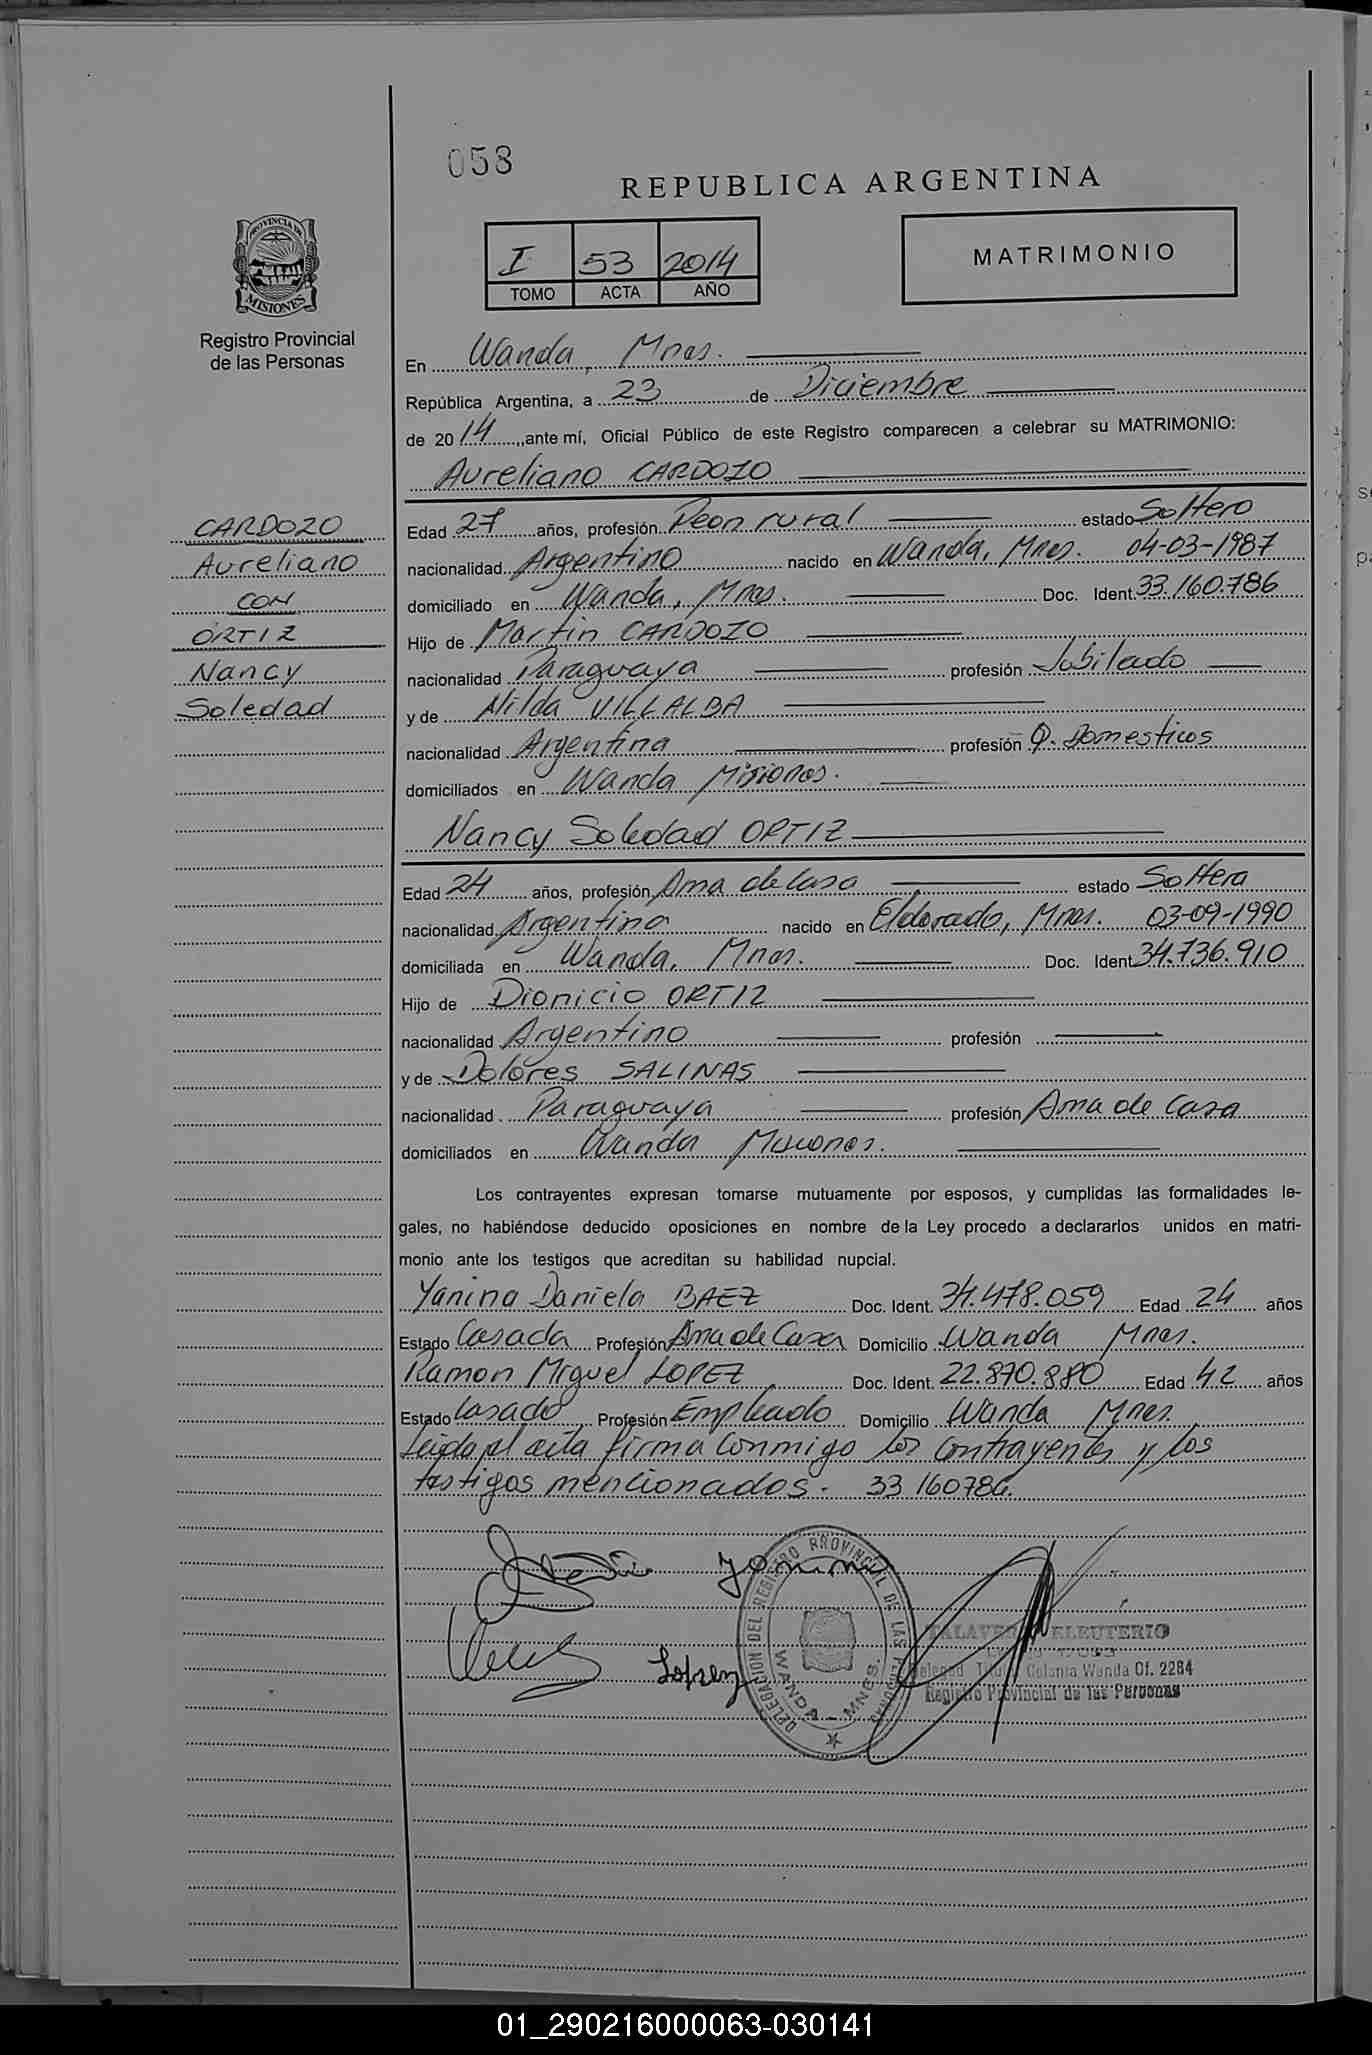 058
REPUBLICA ARGENTINA
I 53 2014
TOMO ACTA AÑO
MATRIMONIO
PROVINCIA DE
MISIONES
Registro Provincial
de las Personas
CARDOZO
Aureliano
CON
ORTIZ
Nancy
Soledad
En Wanda, Mnes.
República Argentina, a 23 de Diciembre
de 2014, ante mí, Oficial Público de este Registro comparecen a celebrar su MATRIMONIO:
Aureliano CARDOZO
Edad 27 años, profesión Peon rural estado Soltero
nacionalidad Argentino nacido en Wanda, Mnes. 04-03-1987
domiciliado en Wanda, Mnes. Doc. Ident. 33.160.786
Hijo de Martin CARDOZO
nacionalidad Paraguaya profesión Jubilado
y de Nilda VILLALBA
nacionalidad Argentina profesión Q. Domesticos
domiciliados en Wanda Misiones.
Nancy Soledad ORTIZ
Edad 24 años, profesión Ama de Casa estado Soltera
nacionalidad Argentina nacido en Eldorado, Mnes. 03-09-1990
domiciliada en Wanda, Mnes. Doc. Ident 34.736.910
Hijo de Dionicio ORTIZ
nacionalidad Argentino profesión
y de Dolores SALINAS
nacionalidad Paraguaya profesión Ama de Casa
domiciliados en Wanda Misiones.
Los contrayentes expresan tomarse mutuamente por esposos, y cumplidas las formalidades le-
gales, no habiéndose deducido oposiciones en nombre de la Ley procedo a declararlos unidos en matri-
monio ante los testigos que acreditan su habilidad nupcial.
Yanina Daniela BAEZ Doc. Ident. 34.478.059 Edad 24 años
Estado Casada Profesión Ama de Casa Domicilio Wanda Mnes.
Ramon Miguel LOPEZ Doc. Ident. 22.870.880 Edad 42 años
Estado Casado Profesión Empleado Domicilio Wanda Mnes.
Leida el acta firma conmigo los contrayentes y los
testigos mencionados. 33 160786.
Lopez
DELEGACION DEL REGISTRO PROVINCIAL DE LAS PERSONAS
WANDA - MNES.
ELEUTERIO
Colonia Wanda Of. 2284
Registro Provincial de las Personas
01_290216000063-030141